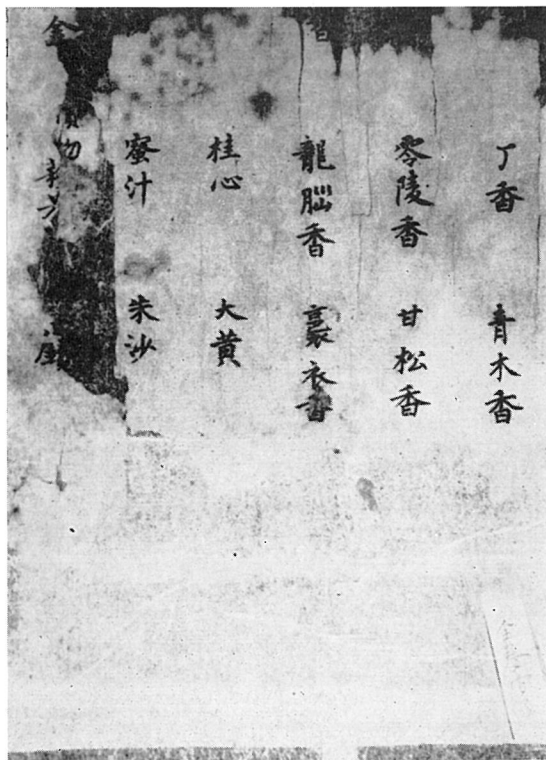 丁香 青木香
零陵香 甘松香
香 龍腦香 裛衣香
桂心 大黄
蜜汁 朱沙
物
金